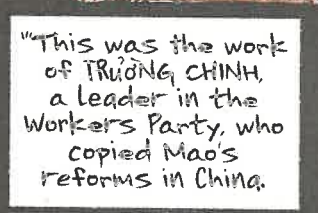 "'This was the work
of TRƯỜNG CHINH,
a leader in the
Workers Party, who
copied Mao's
reforms in China.